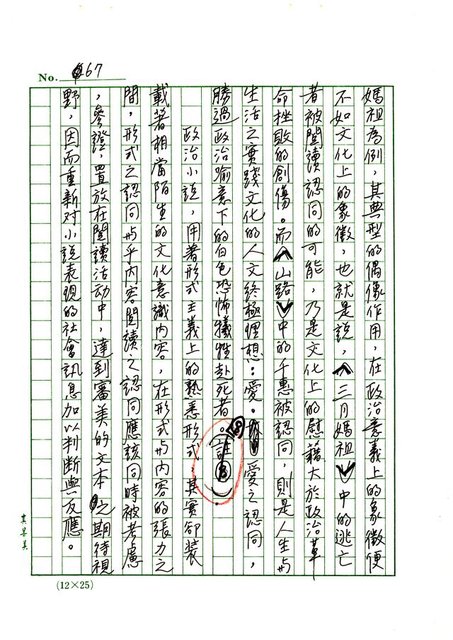 No. 67
媽祖為例，其典型的偶像作用，在政治意義上的象徵便
不如文化上的象徵，也就是說，〈三月媽祖〉中的逃亡
者被閱讀認同的可能，乃是文化上的慰藉大於政治革
命挫敗的創傷。而〈山路〉中的千惠被認同，則是人生與
生活之實踐文化的人文終極理想：愛。愛之認同，
勝過政治喻意下的白色恐怖犧牲赴死者。
政治小說，用著形式主義上的熟悉形式，其實卻裝
載著相當陌生的文化意識內容，在形式與內容的張力之
間，形式之認同與乎內容閱讀之認同應該同時被考慮
，參證，置放在閱讀活动中，達到審美的文本之期待視
野，因而重新对小說表現的社會訊息加以判斷與反應。
(12×25)